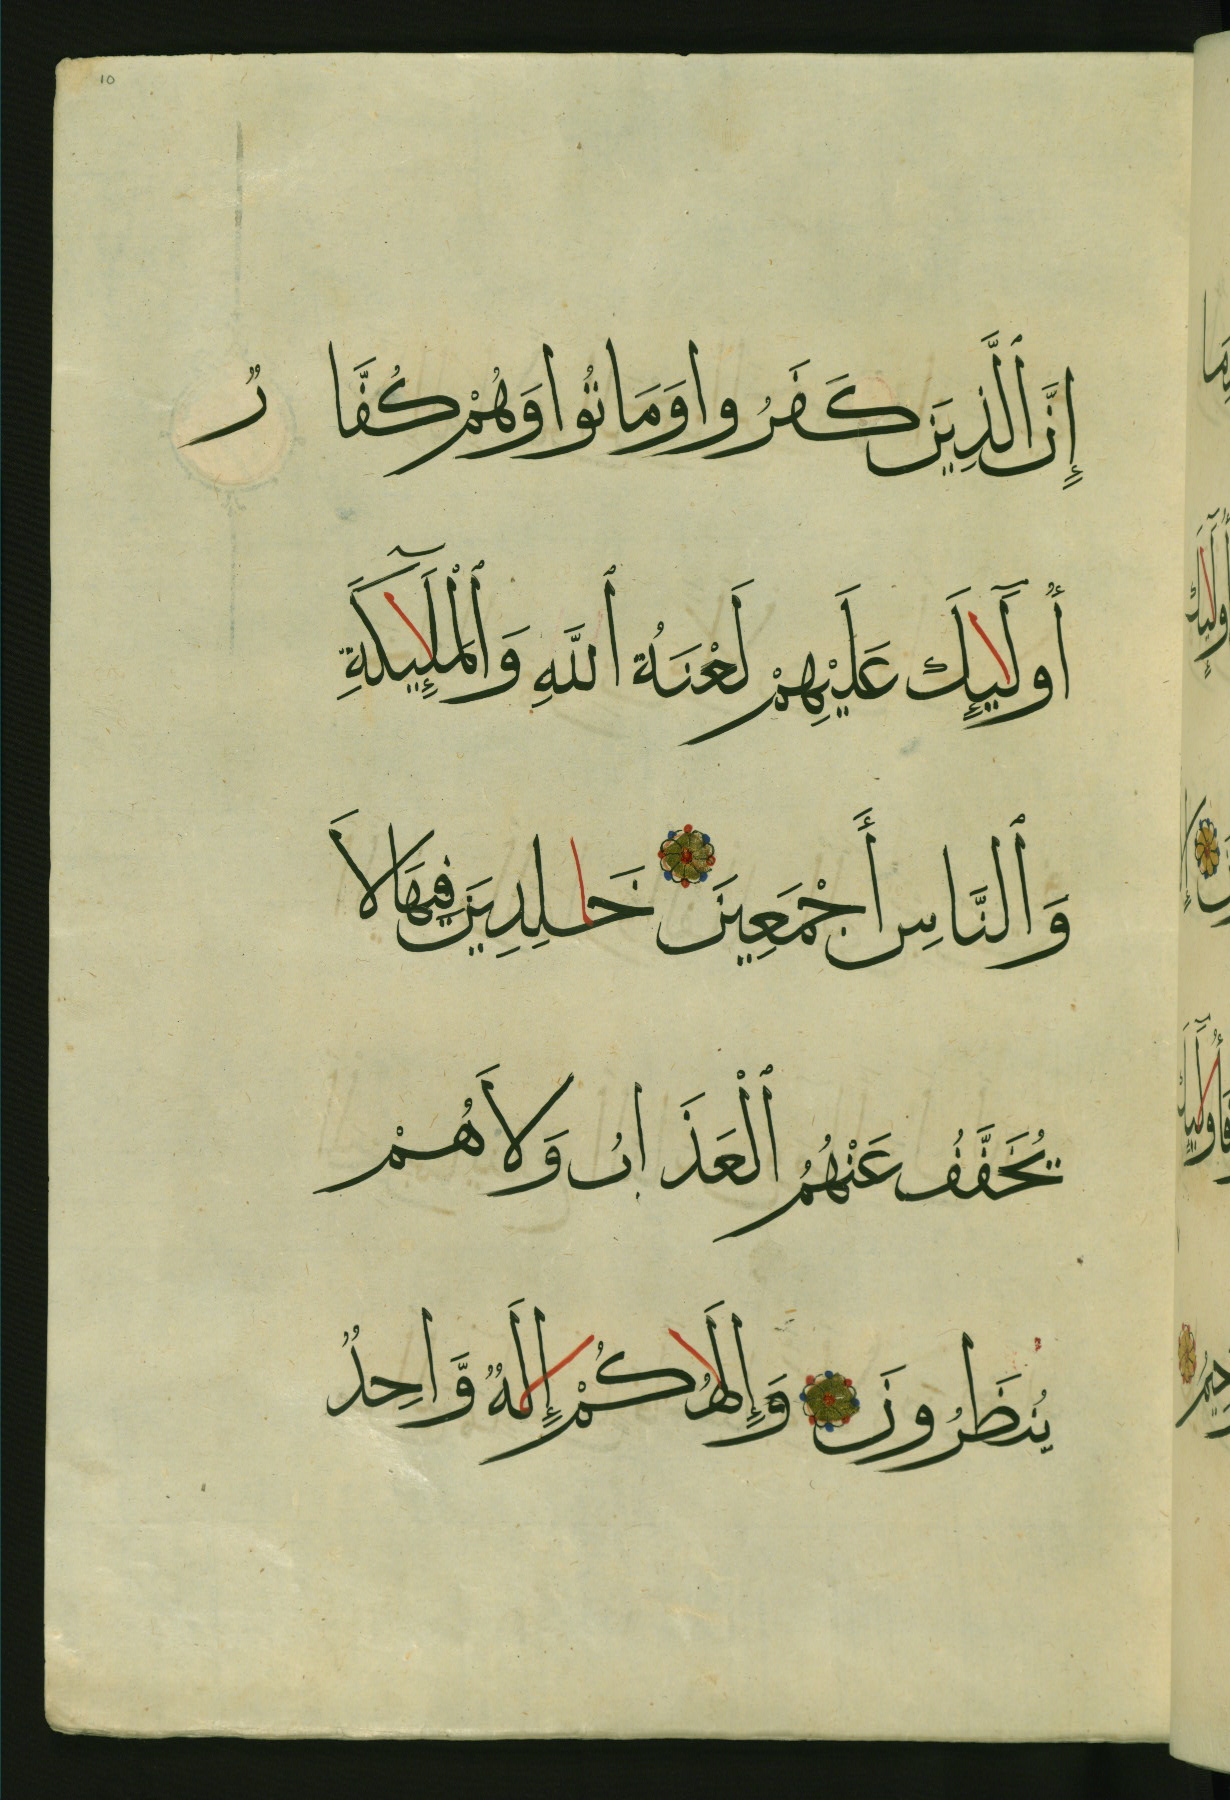 10
إِنَّ ٱلَّذِينَ كَفَرُوا وَمَاتُوا وَهُمْ كُفَّارٌ
أُولَٰٓئِكَ عَلَيْهِمْ لَعْنَةُ ٱللَّهِ وَٱلْمَلَٰٓئِكَةِ
وَٱلنَّاسِ أَجْمَعِينَ خَٰلِدِينَ فِيهَا لَا
يُخَفَّفُ عَنْهُمُ ٱلْعَذَابُ وَلَا هُمْ
يُنظَرُونَ وَإِلَٰهُكُمْ إِلَٰهٌ وَّاحِدٌ